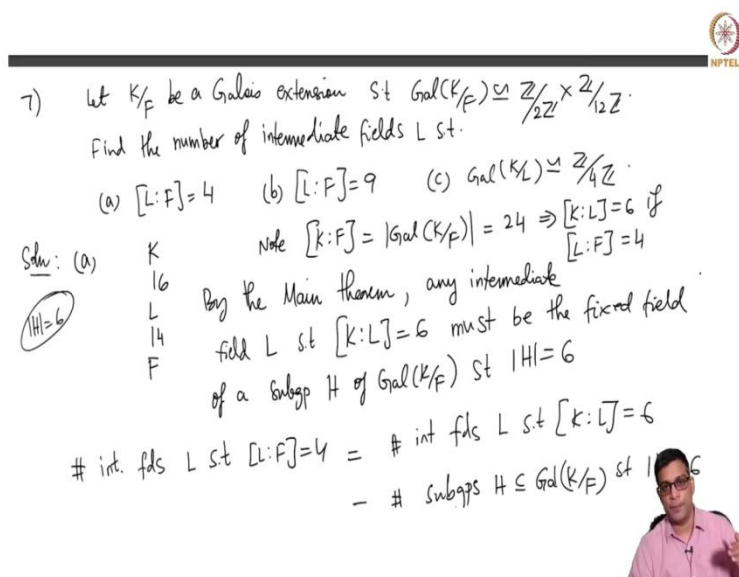 NPTEL
7) Let K/F be a Galois extension s.t Gal(K/F) ≅ Z/2Z × Z/12Z.
Find the number of intermediate fields L s.t.
(a) [L:F]=4 (b) [L:F]=9 (c) Gal(K/L) ≅ Z/4Z.
Soln: (a) Note [K:F] = |Gal(K/F)| = 24 ⇒ [K:L]=6 if
[L:F]=4
K
|6
L
|4
F
|H|=6
By the Main theorem, any intermediate
field L s.t [K:L]=6 must be the fixed field
of a subgp H of Gal(K/F) st |H|=6
# int. fds L s.t [L:F]=4 = # int fds L s.t [K:L]=6
= # subgps H ⊆ Gal(K/F) st | 6